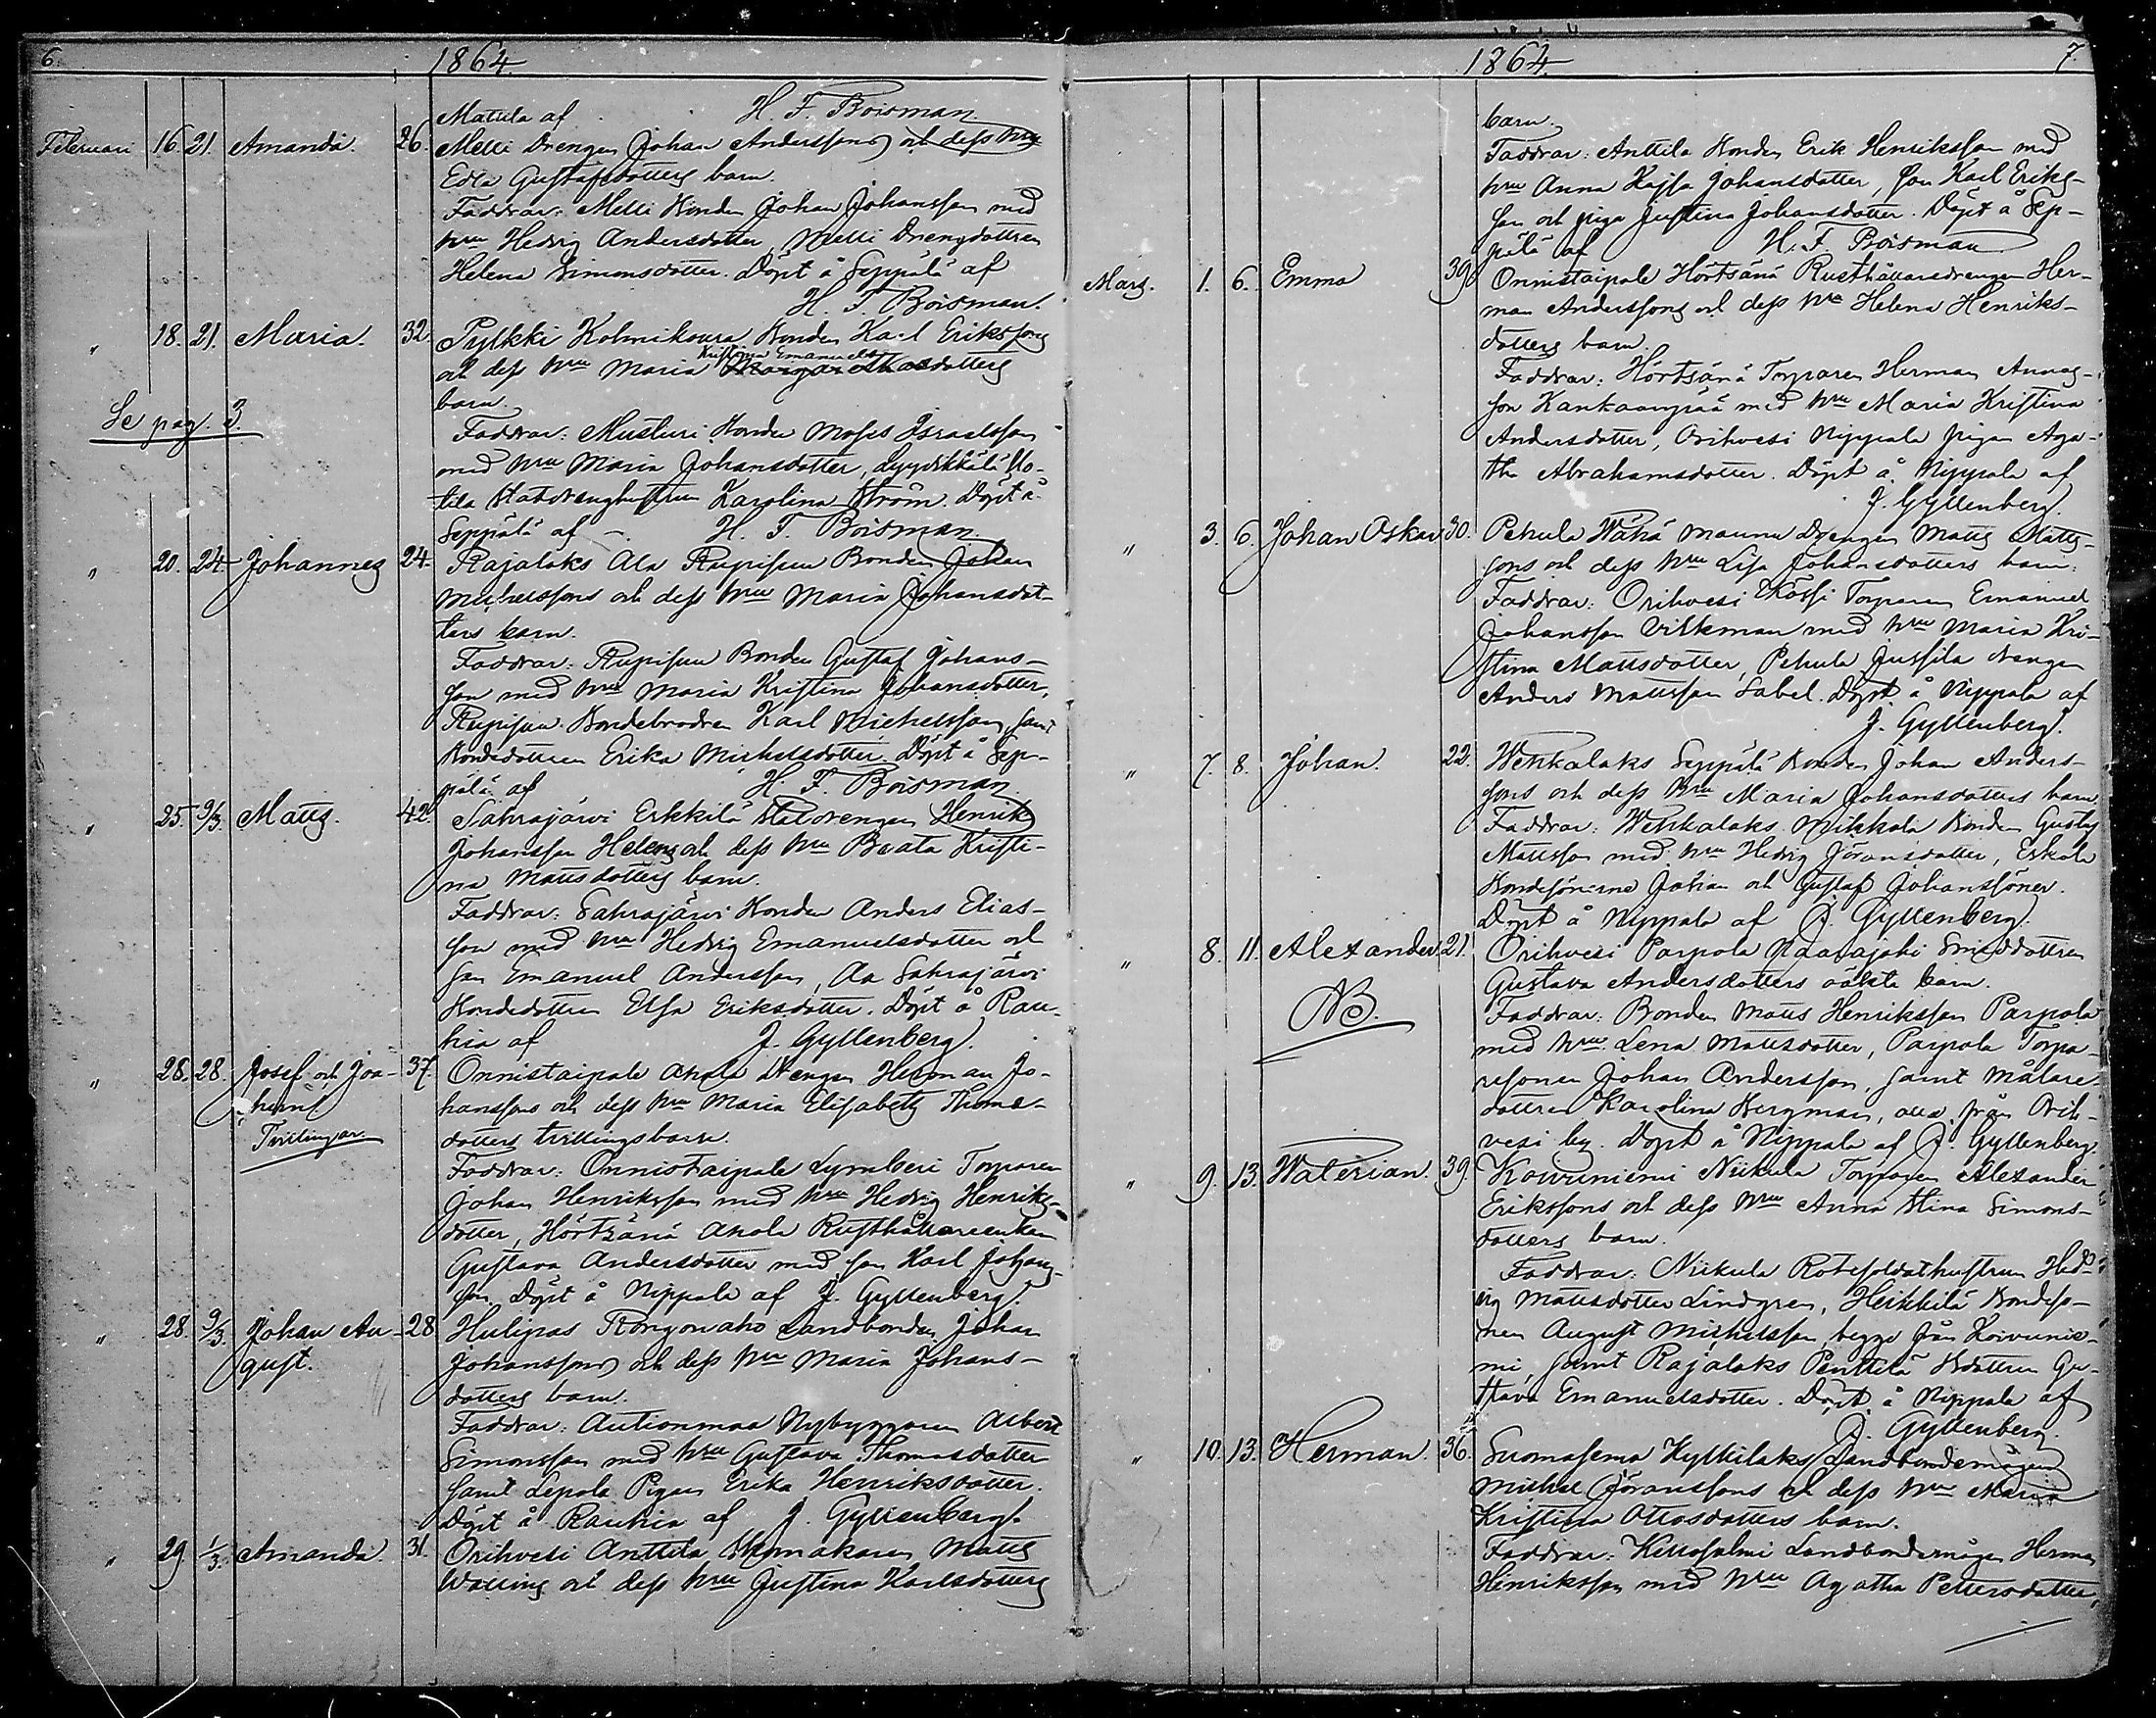 6.
1864.
Matula af H. F. Boisman
Februari 16. 21. Amanda. 26. Melli Drengen Johan Anderssons och dess hru
Edla Gustafsdotters barn.
Faddrar: Melli Bonden Johan Johansson med
hru Hedvig Andersdotter, Melli Drengdottren
Helena Simonsdotter. Döpt å Seppälä af
H. F. Boisman.
" 18. 21. Maria. 32. Pylkki Kolmikoura Bonden Karl Erikssons
Kristina Emanuels
och dess hru Maria Margarethasdotters
barn.
Se pag. 3.
Faddrar: Musturi Bonden Moses Israelsson
med hru Maria Johansdotter, Lyydikkälä Uo-
tila Statdrenghustrun Karolina Ström. Döpt å
Seppälä af H. F. Boisman
" 20. 24. Johannes 24. Rajalaks Ala Rupisuu Bonden Johan
Michelssons och dess hru Maria Johansdot-
ters barn.
Faddrar: Rupisuu Bonden Gustaf Johans-
son med hru Maria Kristina Johansdotter,
Rupisuu Bondebrodren Karl Michelsson, samt
Bondedottren Erika Michelsdotter. Döpt å Sep-
pälä af H. F. Boisman
" 25. 9/3. Matts. 42. Sahrajärvi Erkkilä Statdrengen Henrik
Johansson Helens och dess hru Beata Kristi-
na Mattsdotters barn.
Faddrar: Sahrajärvi Bonden Anders Elias-
son med hru Hedvig Emanuelsdotter och
son Emanuel Andersson, Ala Sahrajärvi
Bondedottren Elsa Eriksdotter. Döpt å Rau-
hia af J. Gyllenberg.
" 28. 28. Josef och Joa- 37. Onnistaipale Anola Drengen Herman Jo-
him
hanssons och dess hru Maria Elisabeth Thoma-
Tvillingar.
dotters tvillingsbarn.
Faddrar: Onnistaipale Lymberi Torparen
Johan Henriksson med hru Hedvig Henriks-
dotter, Hörtsänä Anola Rusthållareenkan
Gustava Andersdotter med son Karl Johans-
son. Döpt å Nippala af J. Gyllenberg.
" 28. 9/3. Johan Au- 28. Hulipas Rongonaho Landbonden Johan
gust.
Johanssons och dess hru Maria Johans-
dotters barn.
Faddrar: Autionmaa Nybyggaren Albert
Simonsson med hru Gustava Thomasdotter
samt Lepola Pigan Erika Henriksdotter.
Döpt å Rauhia af J. Gyllenberg.
" 29 1/3. Amanda. 31. Orihvesi Anttila Skomakaren Matts
Walling och dess hru Justina Karlsdotters
1864.
7.
barn.
Faddrar: Anttila Bonden Erik Henriksson med
hru Anna Kajsa Johansdotter, son Karl Eriks-
son och piga Justina Johansdotter. Döpt å Sep-
pälä af H. F. Boisman
Mars. 1. 6. Emma 39. Onnistaipale Hörtsänä Rusthållaredrengen Her-
man Anderssons och dess hru Helena Henriks-
dotters barn.
Faddrar: Hörtsänä Torparen Herman Annas-
son Kankaanpää med hru Maria Kristina
Andersdotter, Orihvesi Nippala pigan Aga-
tha Abrahamsdotter. Döpt å Nippala af
J. Gyllenberg.
" 3. 6. Johan Oskar 30. Pehula Wähä Maunu Drengen Matts Matts-
sons och dess hru Lisa Johansdotters barn.
Faddrar: Orihvesi Kössi Torparen Emanuel
Johansson Vilkman med hru Maria Kri-
stina Mattsdotter, Pehula Jussila drengen
Anders Mattsson Sabel. Döpt å Nippala af
J. Gyllenberg.
" 7. 8. Johan. 22. Wehkalaks Seppälä Bonden Johan Anders-
sons och dess hru Maria Johansdotters barn.
Faddrar: Wehkalaks Mikkola Bonden Gustaf
Mattsson med hru Hedvig Jöransdotter, Eskola
Bondesönerne Johan och Gustaf Johanssöner.
Döpt å Nippala af J. Gyllenberg.
" 8. 11. Alexander 21. Orihvesi Parpola Naarajoki Smeddottren
Gustava Andersdotters oäkta barn.
NB.
Faddrar: Bonden Matts Henriksson Parpola
med hru Lena Mattsdotter, Parpola Torpa-
resonen Johan Andersson, samt Målare-
dottren Karolina Bergman, alla från Orih-
vesi by. Döpt å Nippala af J. Gyllenberg.
" 9. 13. Walerian. 39. Koivuniemi Niikula Torparen Alexander
Erikssons och dess hru Anna Stina Simons-
dotters barn.
Faddrar: Niikula Rotesoldathustrun Hed-
vig Mattsdotter Lindgren, Heikkilä Bondeso-
nen August Michelsson, begge från Koivunie-
mi, samt Rajalaks Penttilä Bdottren Gu-
stava Emanuelsdotter. Döpt å Nippala af
J. Gyllenberg.
" 10. 13. Herman. 36. Suomasema Kylkilaks Landbondemågen
Michel Göranssons och dess hru Maria
Kristina Ottosdotters barn.
Faddrar: Landbondemågen Herman
Henriksson med hru Agatha Pettersdotter,